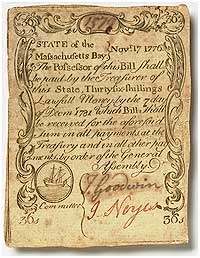 STATE of the Nov.r 17 1776.
Massachusetts Bay.
The Possessor of this Bill shall
be paid by the Treasurer of
this State, Thirty six shillings
Lawfull Money, by the 7 day
of Decm. 1781 which Bill shall
be received for the aforesaid
Sum in all payments at the
Treasury and in all other pay
ments, by order of the General
Assembly
J Goodwin
Committee J. Noyes
36s 36s